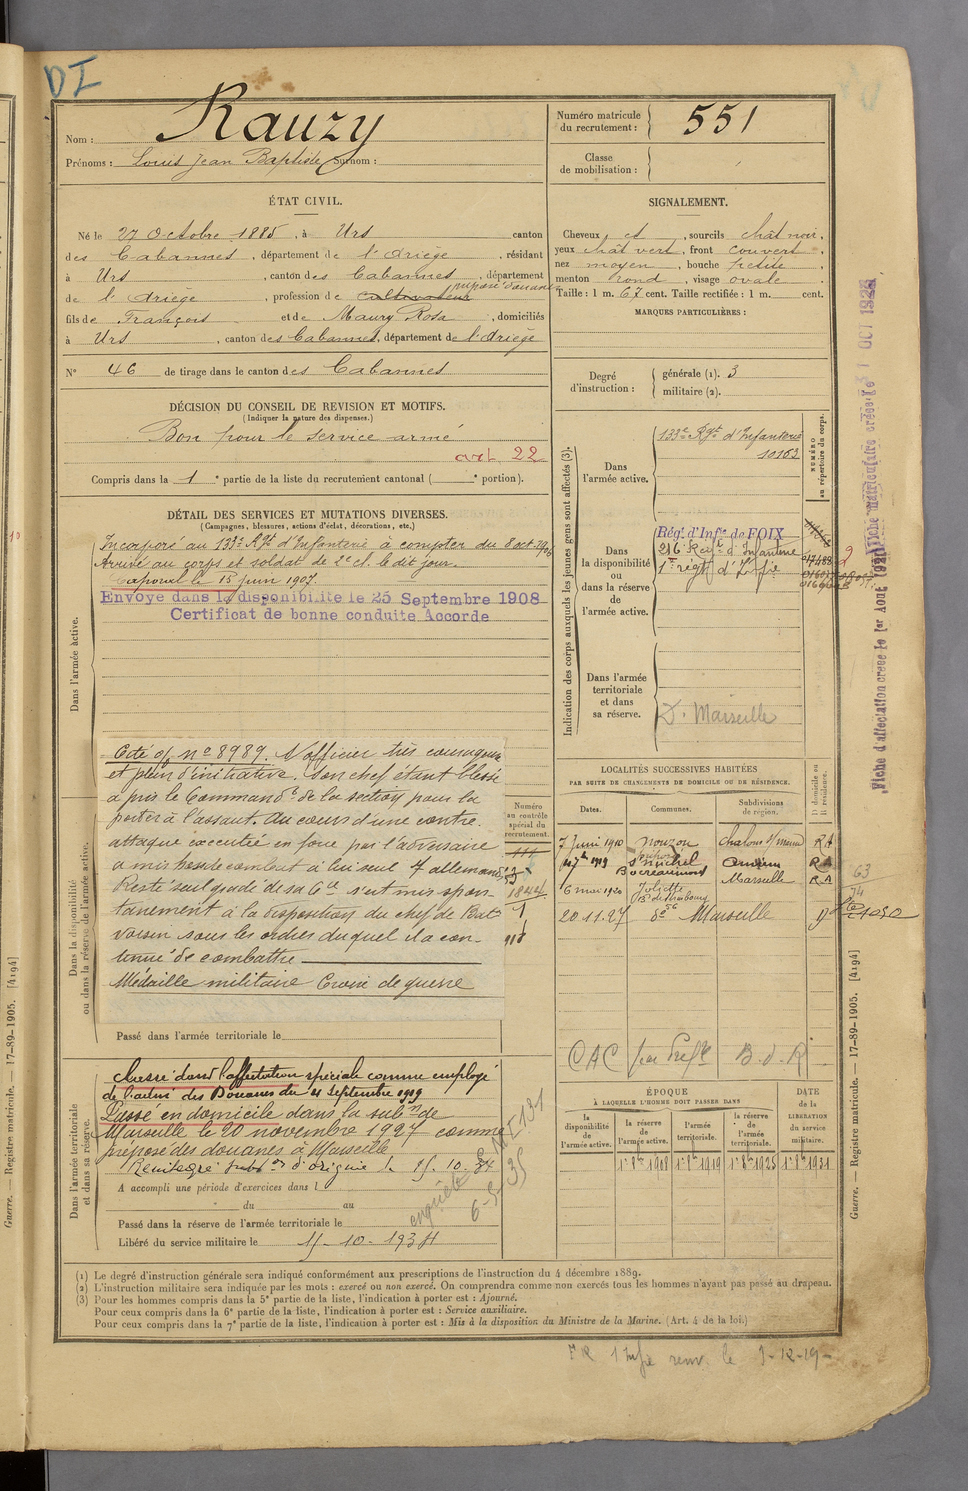 DI
Nom : Rauzy
Prénoms : Louis Jean Baptiste Surnom :
Numéro matricule du recrutement : 551
Classe de mobilisation :
ÉTAT CIVIL.
Né le 27 Octobre 1885, à Urs canton
des Cabannes, département de l'Ariège, résidant
à Urs, canton des Cabannes, département
de l'Ariège, profession de cultivateur préposé douanes
fils de François et de Maury Rosa, domiciliés
à Urs, canton des Cabannes, département de l'Ariège
N° 46 de tirage dans le canton des Cabannes
SIGNALEMENT.
Cheveux et, sourcils chât noir,
yeux chât vert, front couvert,
nez moyen, bouche petite,
menton rond, visage ovale.
Taille : 1 m. 67 cent. Taille rectifiée : 1 m. cent.
MARQUES PARTICULIÈRES :
Degré d'instruction : générale (1). 3
militaire (2).
DÉCISION DU CONSEIL DE REVISION ET MOTIFS.
(Indiquer la nature des dispenses.)
Bon pour le service armé
art. 22
Compris dans la 1e partie de la liste du recrutement cantonal ( e portion).
DÉTAIL DES SERVICES ET MUTATIONS DIVERSES.
(Campagnes, blessures, actions d'éclat, décorations, etc.)
Dans l'armée active.
Incorporé au 133e Rgt d'Infanterie à compter du 8 oct. 1906
Arrivé au corps et soldat de 2e cl. le dit jour.
Caporal le 15 juin 1907.
Envoyé dans la disponibilité le 25 Septembre 1908
Certificat de bonne conduite Accordé
Dans la disponibilité ou dans la réserve de l'armée active.
Cité n° 8989. S/officier très courageux
et plein d'initiative. Son chef étant blessé
a pris le Commandt de la section pour la
porter à l'assaut. Au cours d'une contre-
attaque exécutée en force par l'adversaire
a mis hors de combat à lui seul 7 allemands
Resté seul gradé de sa Cie s'est mis spon-
tanement à la disposition du chef de Bat.
voisin sous les ordres duquel il a con-
tinué de combattre
Médaille militaire Croix de guerre
Passé dans l'armée territoriale le
Numéro au contrôle spécial du recrutement.
Dans l'armée territoriale et dans sa réserve.
Classé dans l'affectation spéciale comme employé
de l'admi des Douanes du 21 Septembre 1919
Passé en domicile dans la subon de
Marseille le 20 novembre 1927 comme
préposé des douanes à Marseille
Réintégré Subdon d'origine le 15.10.34
A accompli une période d'exercices dans l
du au
Passé dans la réserve de l'armée territoriale le
Libéré du service militaire le 15-10-1934
enquête 6-5-35
Indication des corps auxquels les jeunes gens sont affectés (3).
NUMÉRO au répertoire du corps.
Dans l'armée active.
133e Rgt d'Infanterie
10163
Dans la disponibilité ou dans la réserve de l'armée active.
Régt d'Infie de FOIX
216e Régt d'Infanterie
1er régt d'Infie
Dans l'armée territoriale et dans sa réserve.
D. Marseille
LOCALITÉS SUCCESSIVES HABITÉES
PAR SUITE DE CHANGEMENTS DE DOMICILE OU DE RÉSIDENCE.
Dates. Communes. Subdivisions de région. D domicile ou R résidence.
7 Juin 1910 Nouzon Chalons s/marne RA
1919 St Michel Amiens RA
6 mai 1920 Joliette Bd de Strasbourg Marseille RA
20.11.27 Marseille D
CAC par Préfre B.d.R
ÉPOQUE
À LAQUELLE L'HOMME DOIT PASSER DANS
la disponibilité de l'armée active. la réserve de l'armée active. l'armée territoriale. la réserve de l'armée territoriale. DATE de la LIBÉRATION du service militaire.
1er 8bre 1908 1er 8bre 1919 1er 8bre 1925 1er 8bre 1931
Fiche d'affectation créée le 1er Août
Fiche matriculaire créée le OCT 1928
Guerre. — Registre matricule. — 17-89-1905. [4194]
Guerre. — Registre matricule. — 17-89-1905. [4194]
(1) Le degré d'instruction générale sera indiqué conformément aux prescriptions de l'instruction du 4 décembre 1889.
(2) L'instruction militaire sera indiquée par les mots : exercé ou non exercé. On comprendra comme non exercés tous les hommes n'ayant pas passé au drapeau.
(3) Pour les hommes compris dans la 5e partie de la liste, l'indication à porter est : Ajourné.
Pour ceux compris dans la 6e partie de la liste, l'indication à porter est : Service auxiliaire.
Pour ceux compris dans la 7e partie de la liste, l'indication à porter est : Mis à la disposition du Ministre de la Marine. (Art. 4 de la loi.)
FR 1 Infie renv. le 3-12-19